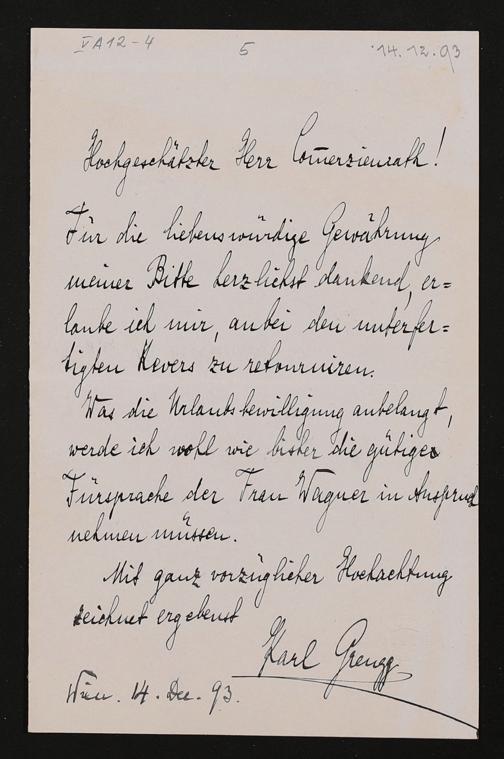 VA12-4 5 14.12.93
Hochgeschätzter Herr Com̅erzienrath!
Für die liebenswürdige Gewährung
meiner Bitte herzlichst dankend, er=
laube ich mir, anbei den unterfer=
tigten Revers zu retourniren.
Was die Urlaubsbewilligung anbelangt,
werde ich wohl wie bisher die gütige
Fürsprache der Frau Wagner in Anspruch
nehmen müssen.
Mit ganz vorzüglicher Hochachtung
zeichnet ergebenst
Karl Grengg
Wien. 14. Dec. 93.